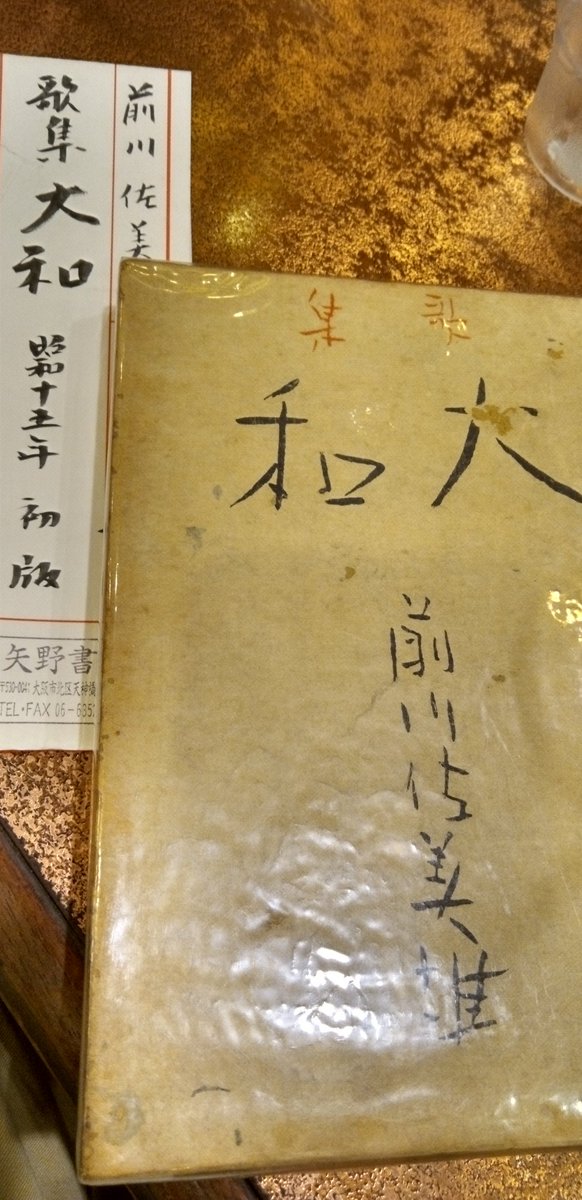 前川佐美
歌集 大和 昭和十五年 初版
矢野書
〒530-0041 大阪市北区天神橋
TEL・FAX 06-635
歌集
大和
前川佐美雄